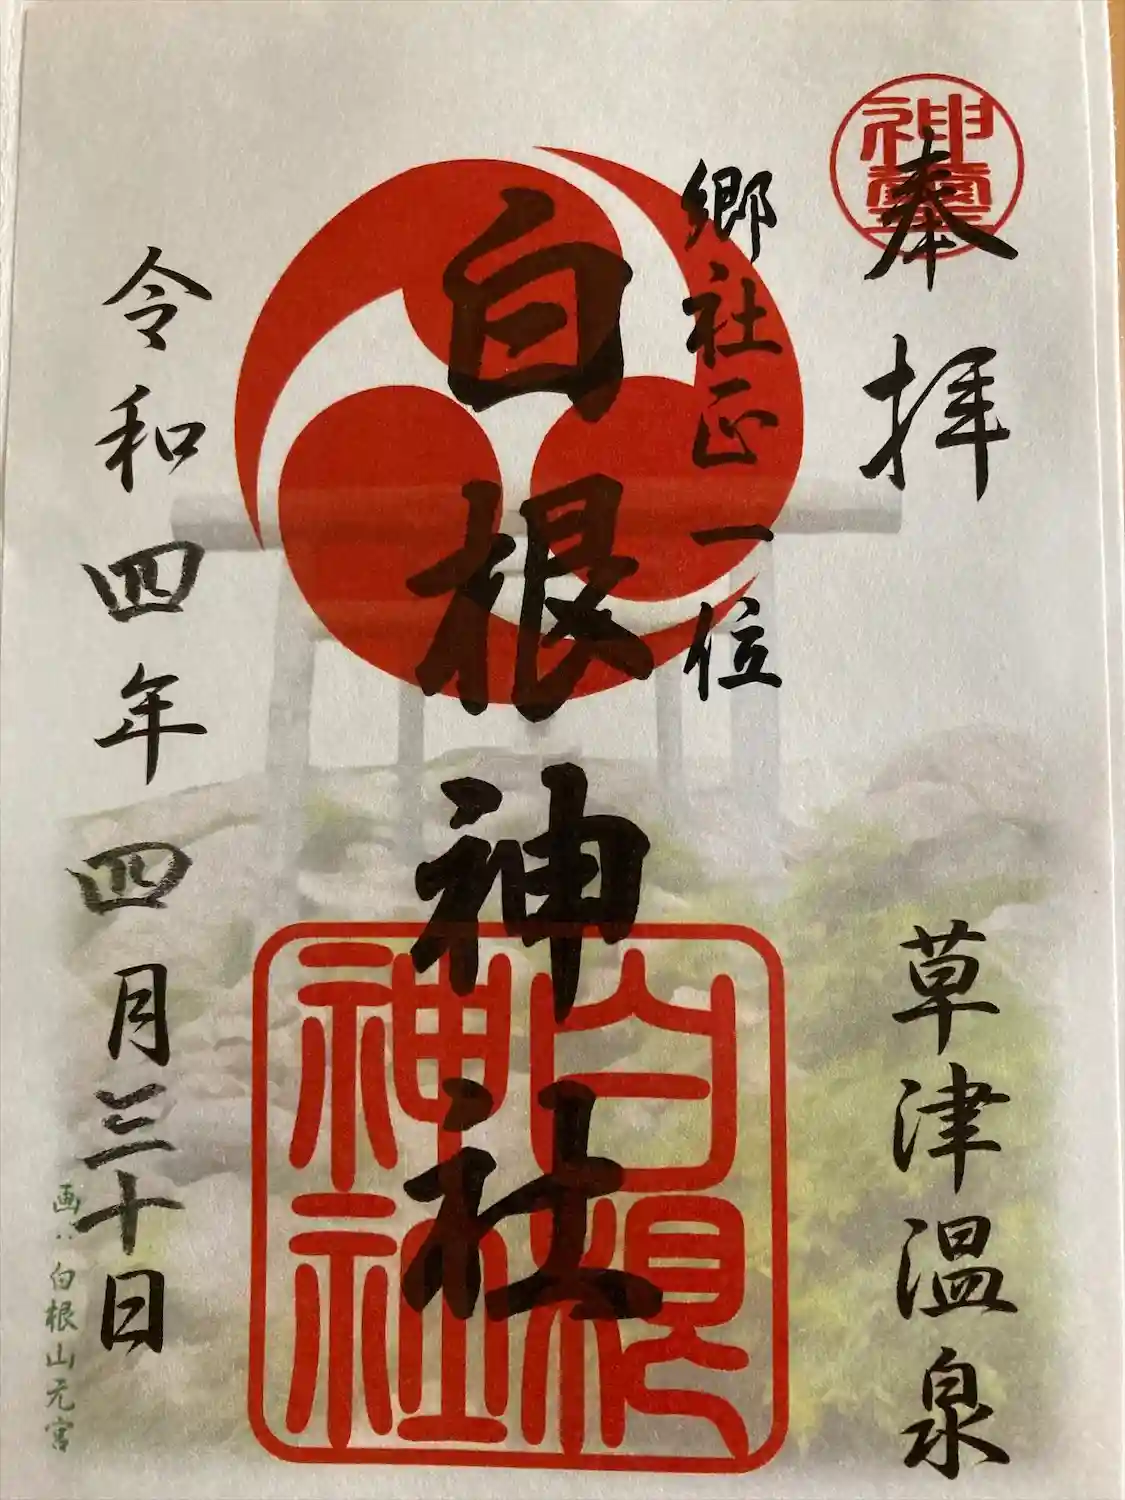 神璽
奉拝
草津温泉
郷社正一位
白根神社
白根神社
令和四年四月三十日
画:白根山元宮